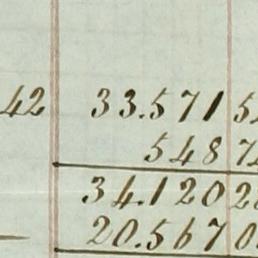 42 33.571 5
548 7
34.120 2
20.567 0